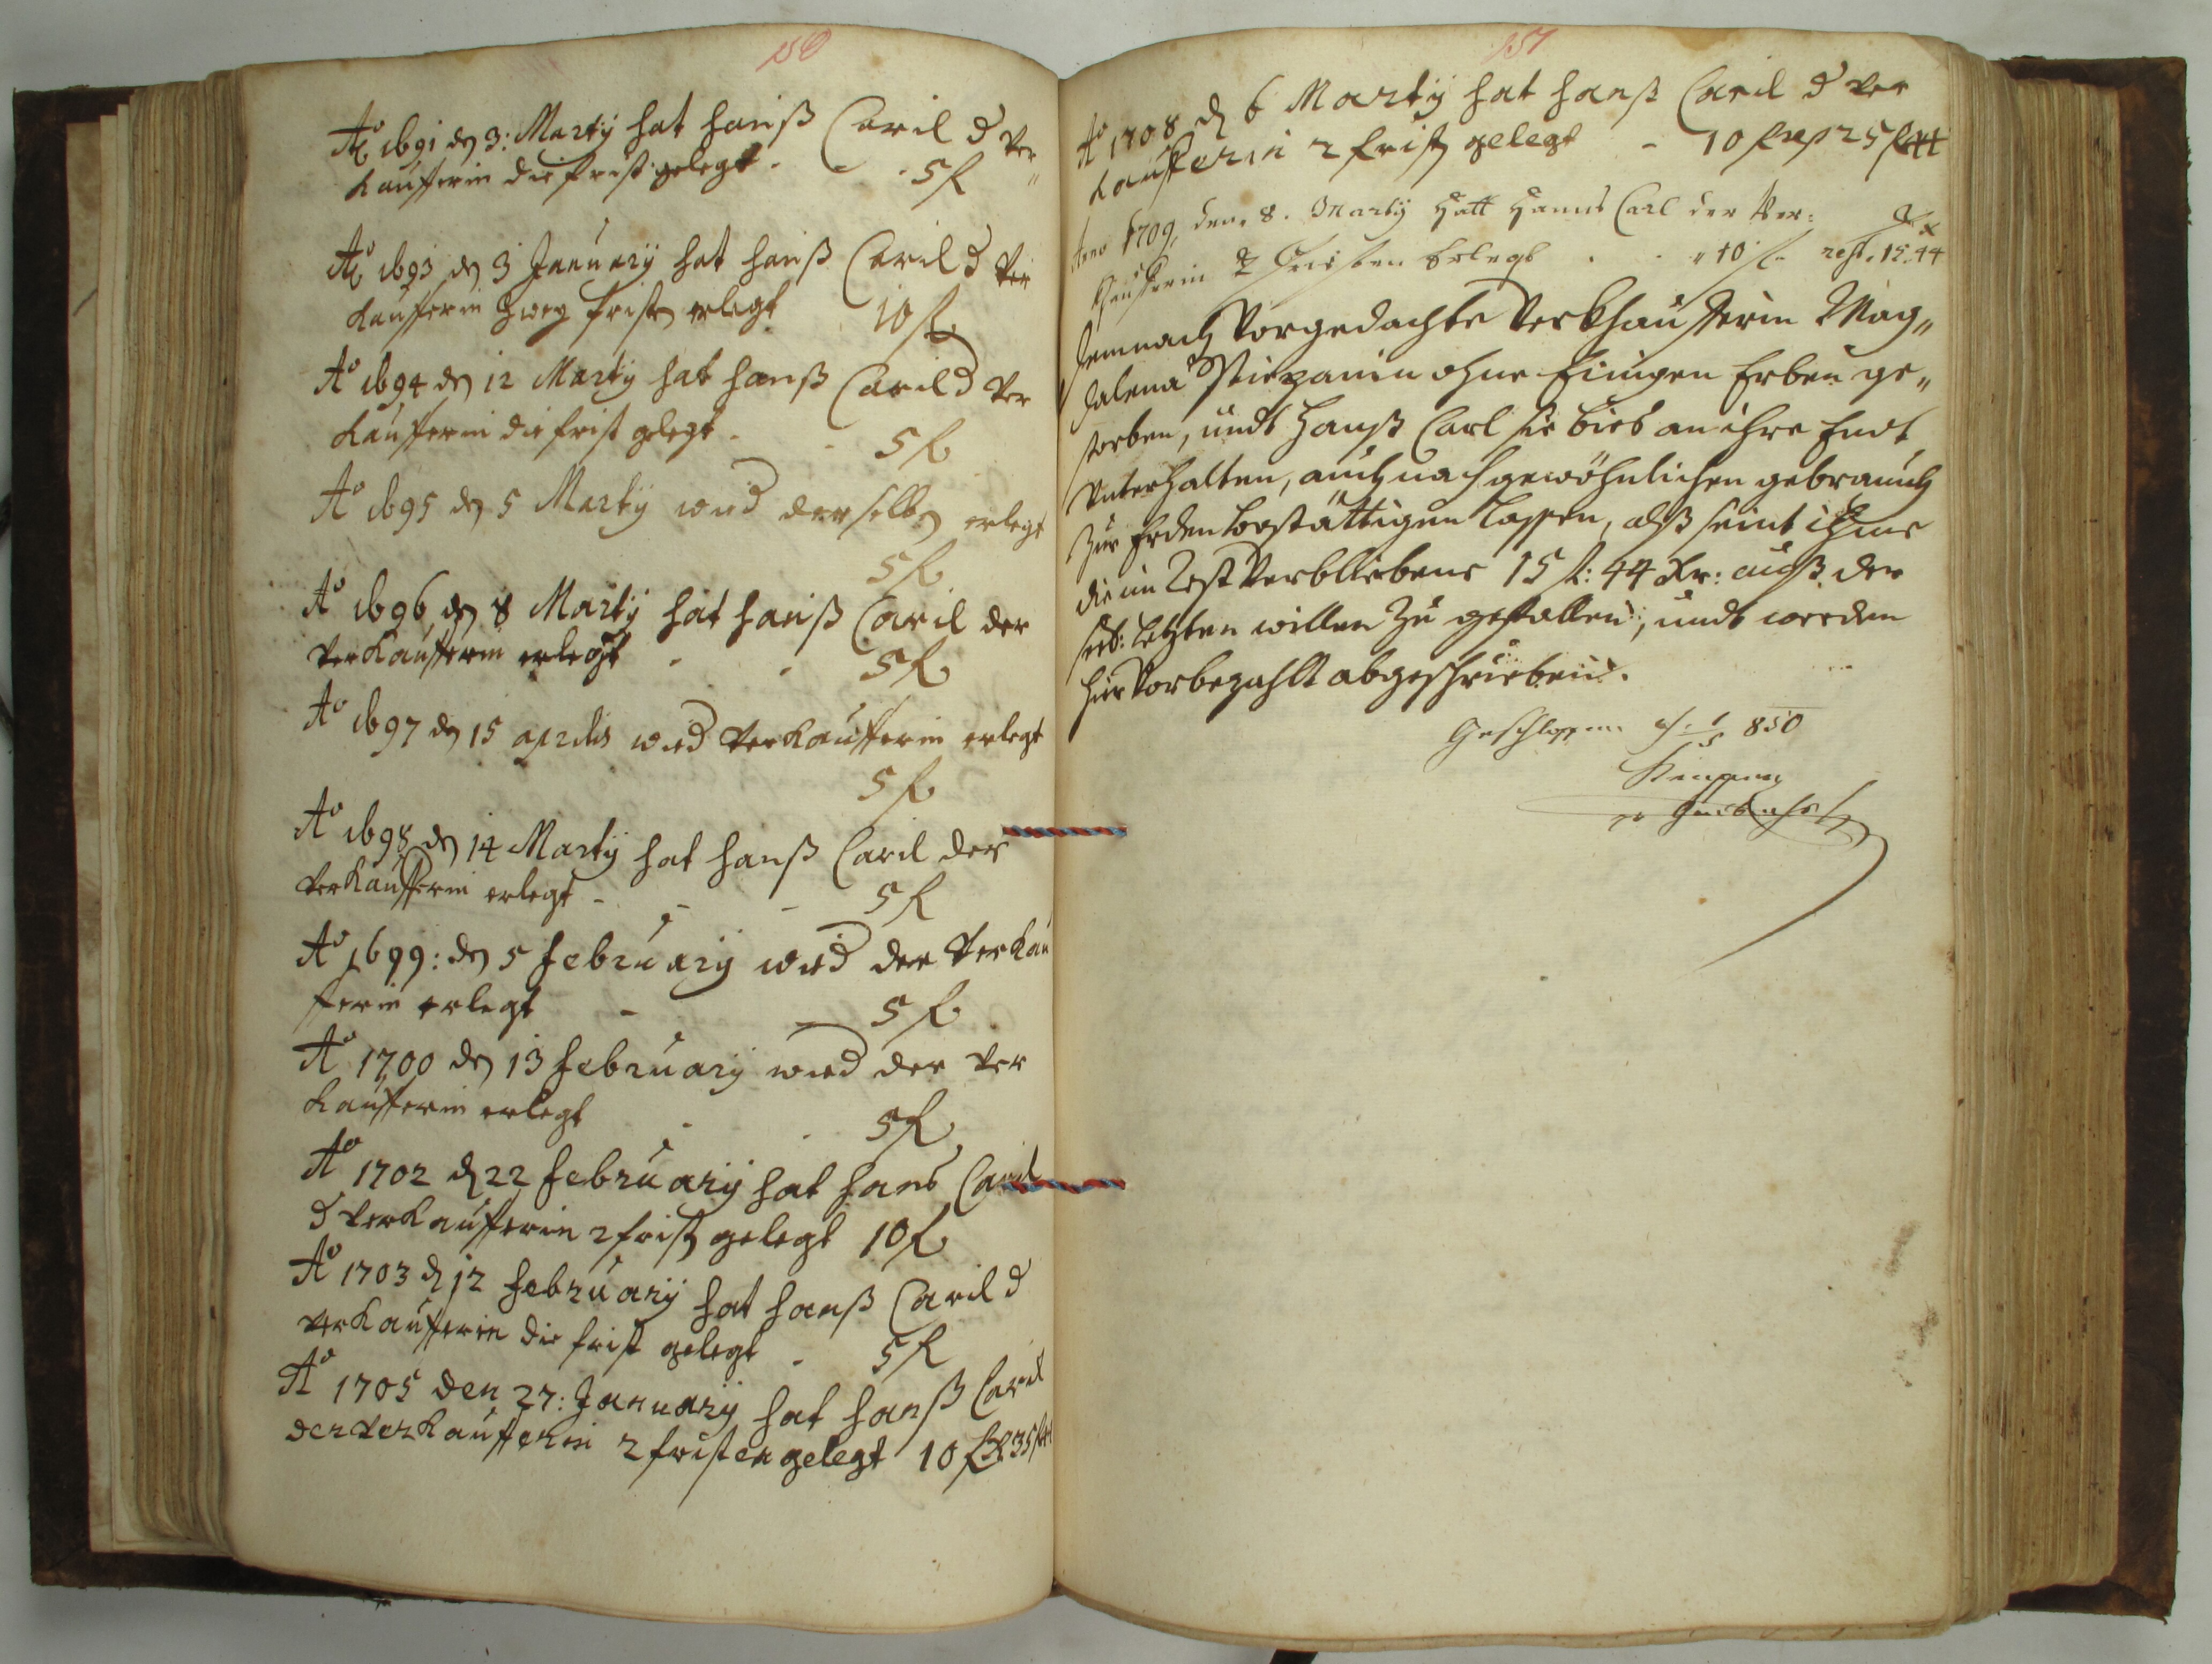 150
Ao 1691 den 3: Martÿ hat hanß Caril d ver„
kaufferin die frist gelegt - . 5 fl
Ao 1693 den 3 Januarÿ hat hanß Caril d ver
kaufferin zweÿ fristen erlegt 10 fl
Ao 1694 den 12 Martÿ hat hanß Caril d ver
kaufferin die frist gelegt - 5 fl
Ao 1695 den 5 Martÿ wird derselben erlegt
5 fl
Ao 1696 den 8 Martÿ hat hanß Caril der
verkaufferin erlegt - - 5 fl
Ao 1697 den 15 aprilis wird verkaufferin erlegt
5 fl
Ao 1698 den 14 Martÿ hat hanß Caril der
verkaufferin erlegt - - - 5 fl
Ao 1699: den 5 februarÿ wird der verkau
fferin erlegt - - 5 fl
Ao 1700 den 13 februarÿ wird der ver
kaufferin erlegt - - 5 fl
Ao 1702 d 22 februarÿ hat hans Caril
d verkaufferin 2 fristen gelegt 10 fl
Ao 1703 d 12 februarÿ hat hanß Caril d
verkaufferin die frist gelegt - 5 fl
Ao 1705 den 27: Januarÿ hat hanß Caril
der verkaufferin 2 fristen gelegt 10 fl 35 fl
151
Ao 1708 d 6 Martÿ hat hanß Caril d ver
kaufferin 2 fristen gelegt - 10 fl rest 25 fl 44
Anno 1709, den. 8. Martÿ Hatt Hannß Carl der Ver: x
Kaufferin 2 Fristen Erlegt . . „ 10 fl. rest. 15. 44
Demnach Vorgedachte Verkhaufferin Mag„
dalena ohne Einigen Erben ge„
storben, undt Hanß Carl sie bies an ihre Endt
Unterhalten, auch nach gewöhnlichen gebrauch
zur Erden bestättigen lassen, alß seint ihme
die im Rest Verbliebene 15 fl: 44 Xr: auß der
letzten willen zu gefallen, undt werden
hier Vor bezahlt abgeschrieben.
Geschlossen 1/5 850